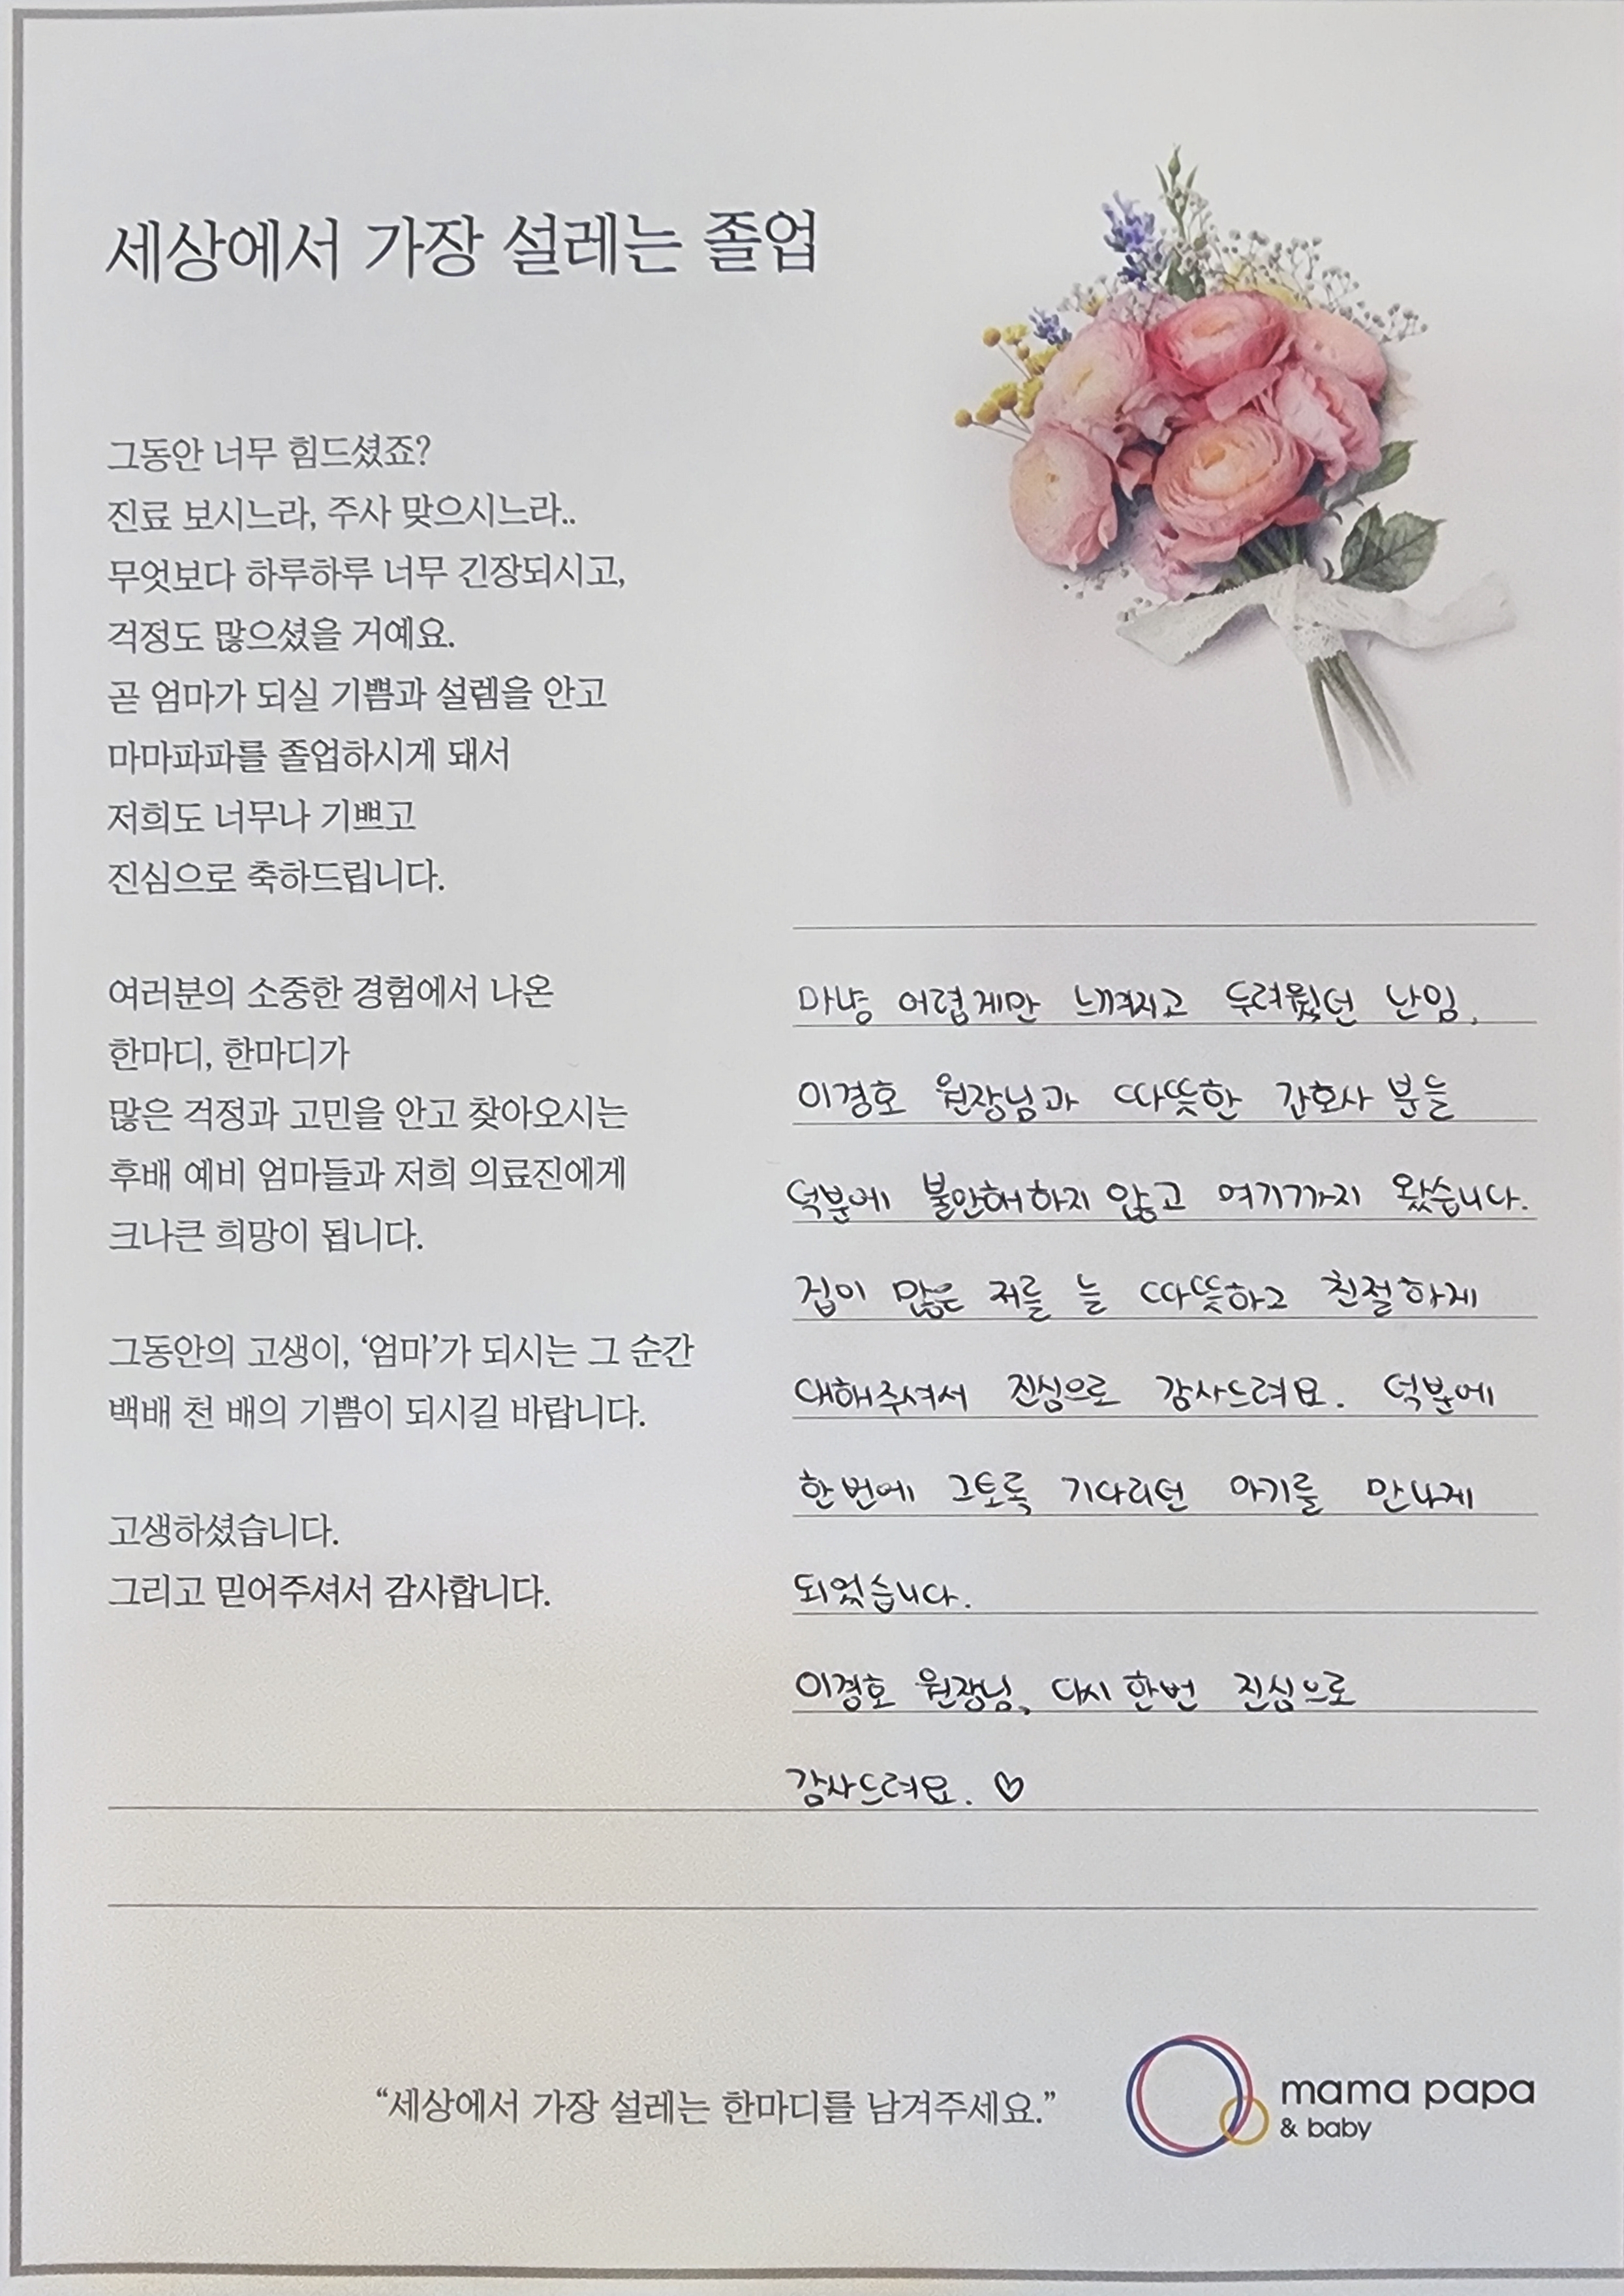 세상에서 가장 설레는 졸업
그동안 너무 힘드셨죠?
진료 보시느라, 주사 맞으시느라..
무엇보다 하루하루 너무 긴장되시고,
걱정도 많으셨을 거예요.
곧 엄마가 되실 기쁨과 설렘을 안고
마마파파를 졸업하시게 돼서
저희도 너무나 기쁘고
진심으로 축하드립니다.
여러분의 소중한 경험에서 나온
한마디, 한마디가
많은 걱정과 고민을 안고 찾아오시는
후배 예비 엄마들과 저희 의료진에게
크나큰 희망이 됩니다.
그동안의 고생이, ‘엄마’가 되시는 그 순간
백배 천 배의 기쁨이 되시길 바랍니다.
고생하셨습니다.
그리고 믿어주셔서 감사합니다.
마냥 어렵게만 느껴지고 두려웠던 난임,
이경호 원장님과 따뜻한 간호사 분들
덕분에 불안해하지 않고 여기까지 왔습니다.
겁이 많은 저를 늘 따뜻하고 친절하게
대해주셔서 진심으로 감사드려요. 덕분에
한번에 그토록 기다리던 아기를 만나게
되었습니다.
이경호 원장님, 다시 한번 진심으로
감사드려요. ♡
“세상에서 가장 설레는 한마디를 남겨주세요.”
mama papa
& baby